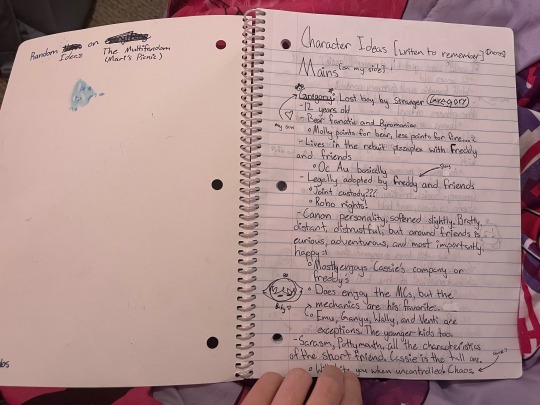 Random Ideas on The Multifandom
(Mart's Picnic)
Character Ideas [written to remember] [notes]
Mains [on my side]
Gregory: Lost boy by Stranger (Gregory)
- 12 years old
- Bear fanatic and Pyromaniac
my son
° Molly points for bear, less points for fire...?
- Lives in the rebuilt pizzaplex with Freddy
and friends
° Oc Au basically
- Legally adopted by Freddy and friends
° Joint custody???
° Robo rights!
- Canon personality, softened slightly. Bratty,
distant, distrustful, but around friends is
curious, adventurous, and most importantly,
happy :)
° Mostly enjoys Cassie's company or
Freddy's
° Does enjoy the MCs, but the
mechanics are his favorites.
Emu, Ganyu, Wally, and Venti are
exceptions. The younger kids too.
- Scrasm, Pottymouth, all the characteristics
of the short friend. Cassie is the tall one.
° Will bite you when uncontrolled. Chaos.